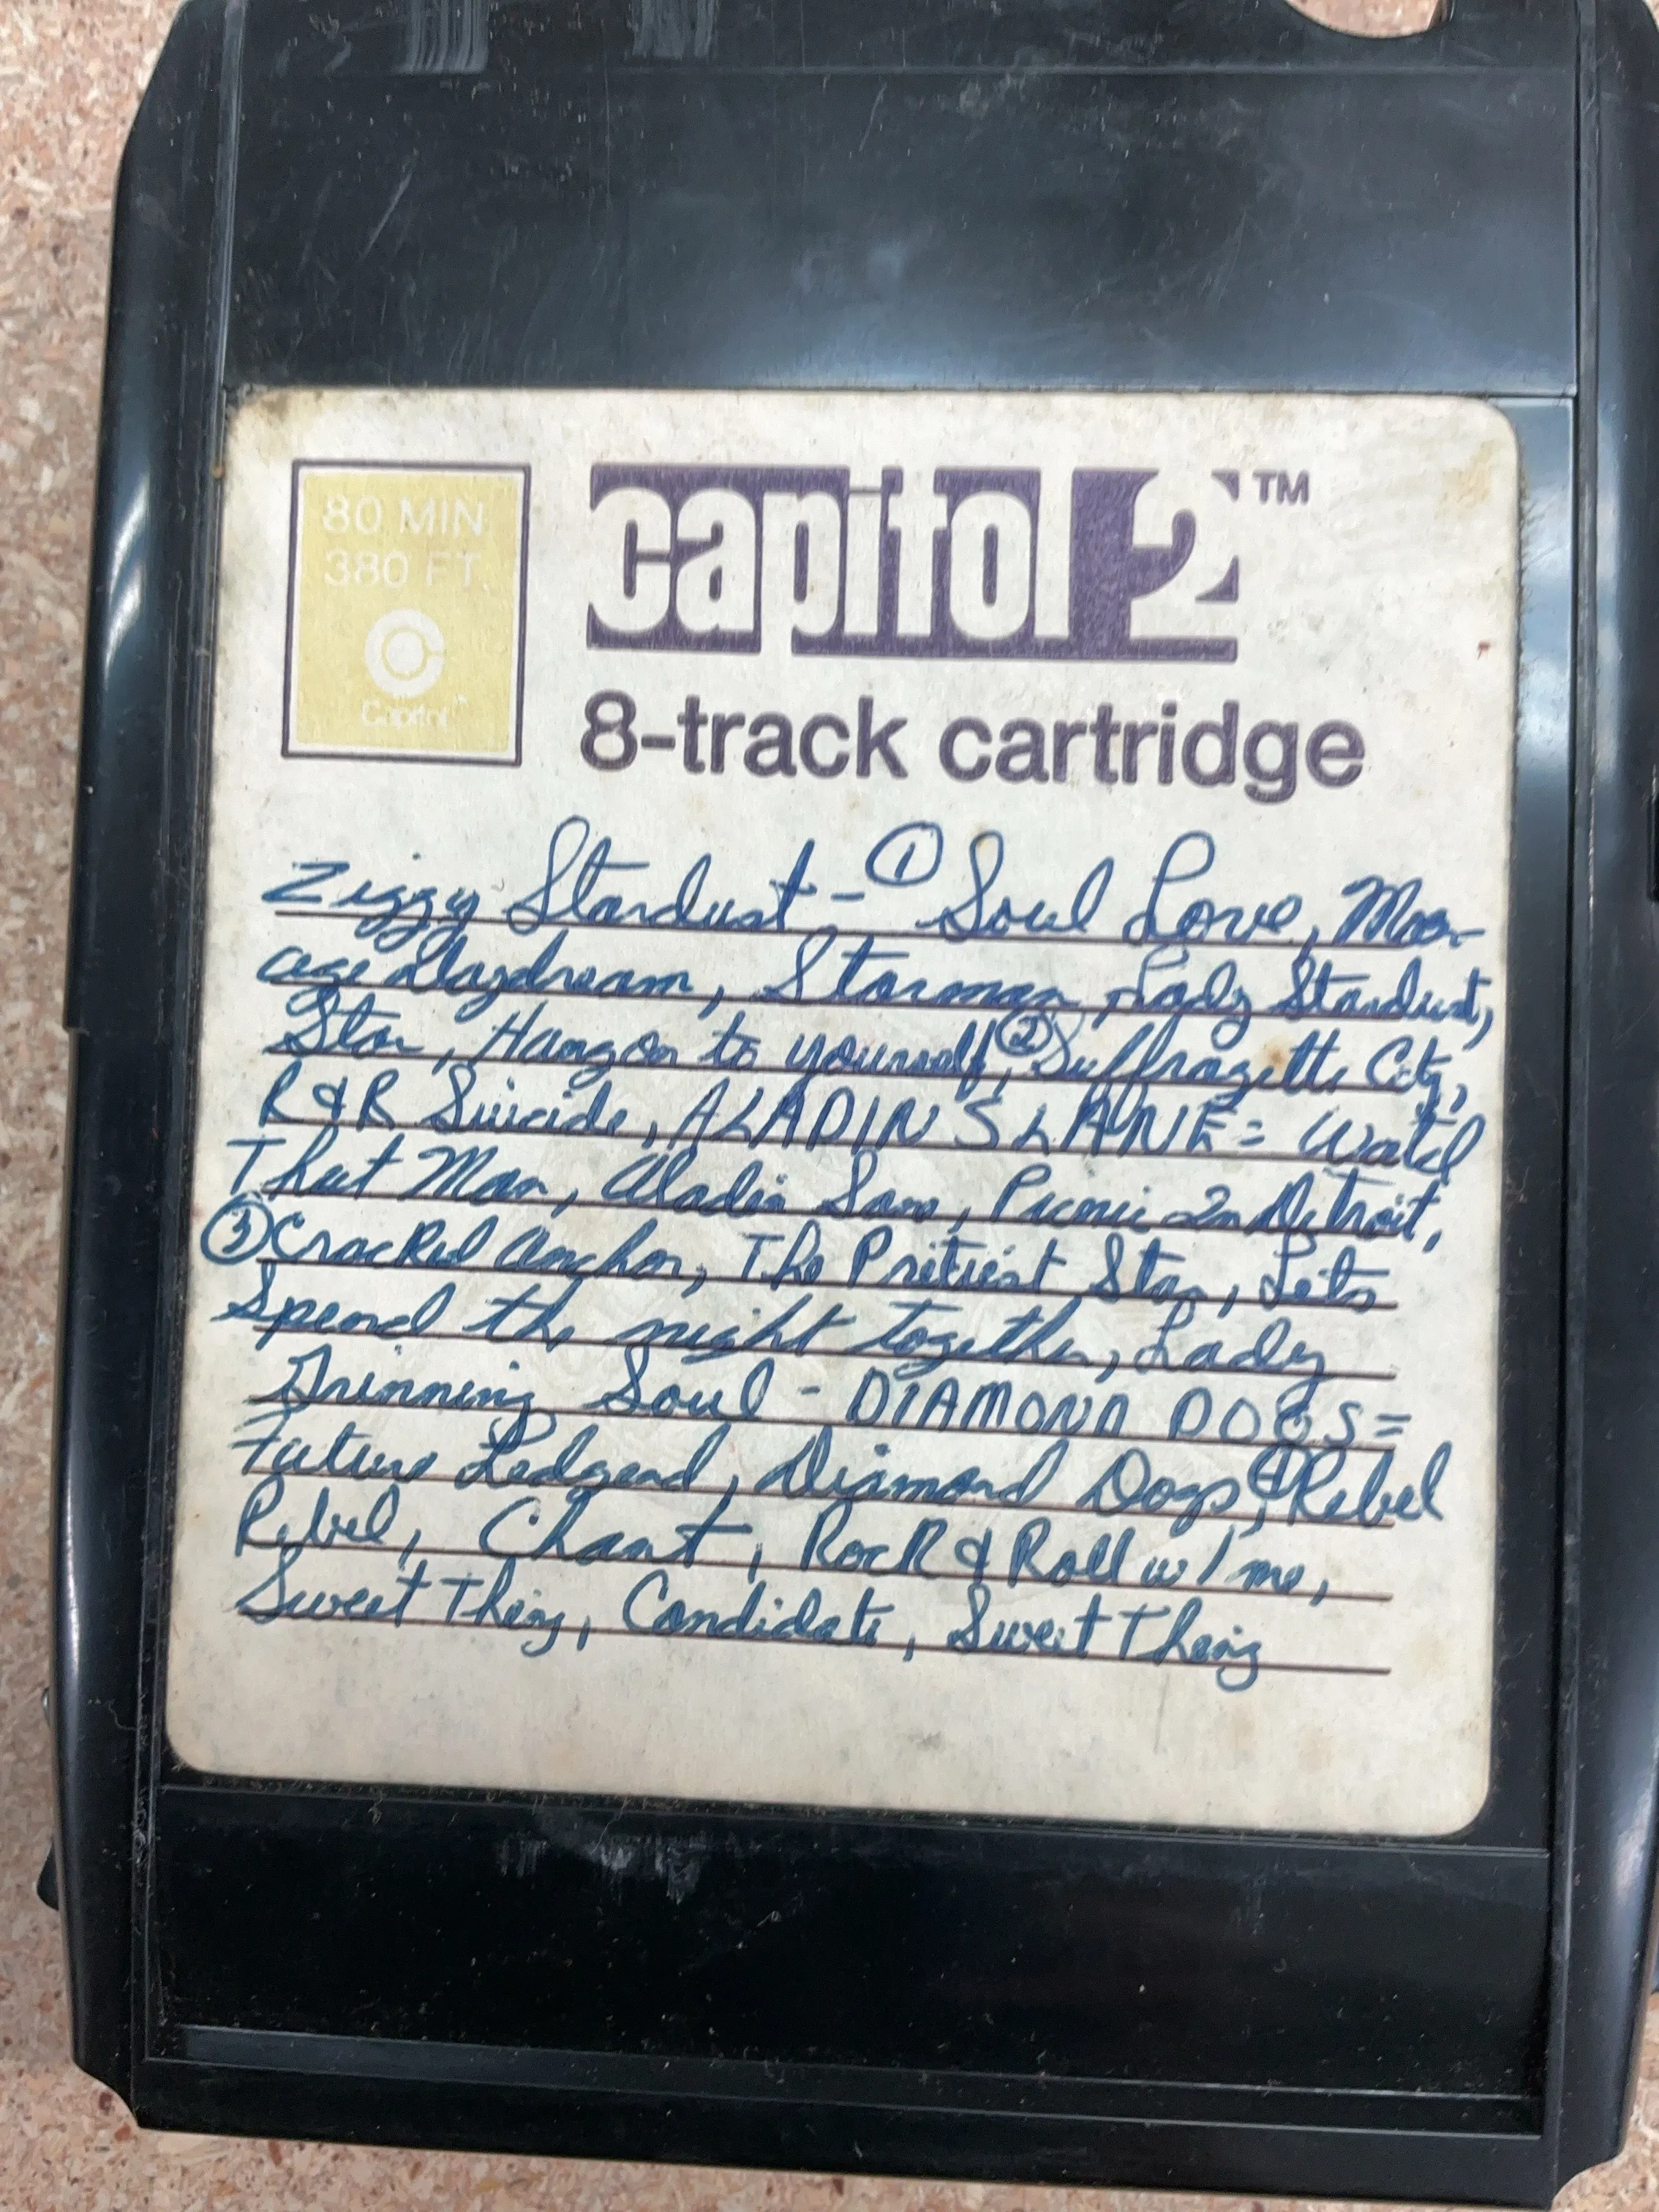 80 MIN
380 FT.
Capitol™
capitol 2™
8-track cartridge
Ziggy Stardust - ① Soul Love, Moon-
age Daydream, Starman, Lady Stardust,
Star, Hang on to yourself, ② Suffragette City,
R & R Suicide, ALADIN SLANE = Watch
That Man, Aladin Sane, Picnic In Detroit,
③ Cracked Anchor, The Pretiest Star, Lets
Spend the night together, Lady
Grinning Soul - DIAMOND DOGS =
Future Ledgend, Diamond Dogs, ④ Rebel
Rebel, Chant, Rock & Roll w/ me,
Sweet Thing, Candidate, Sweet Thing